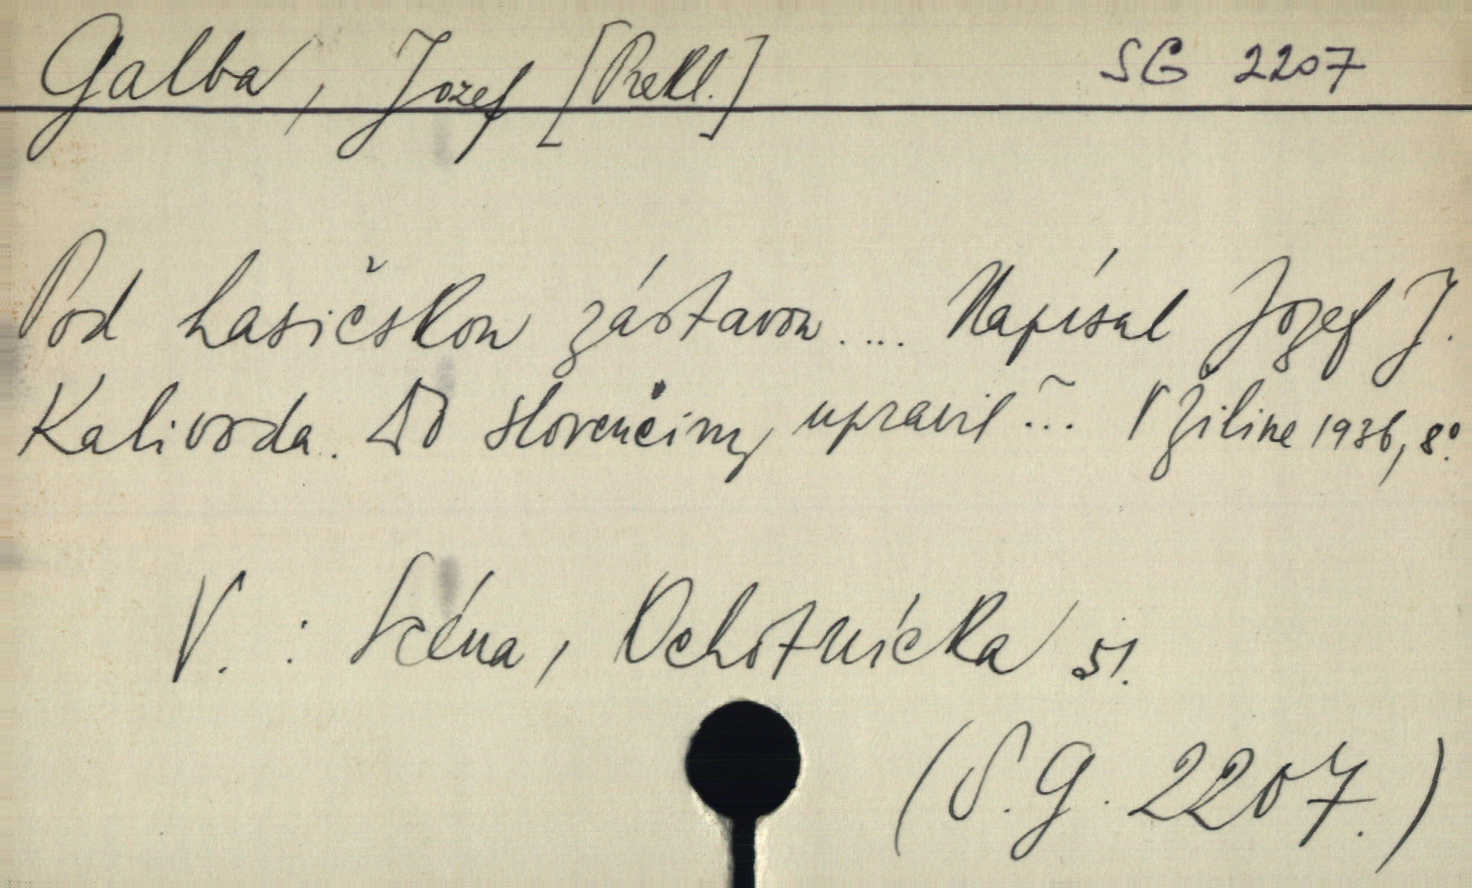 Galba, Jozef [Prekl.] SG 2207
Pod hasičskou zástavou.... Napísal Jozef J.
Kalivoda. Do slovenčiny upravil ~... V Žiline 1936, 8°.
V. : Scéna, Ochotnícka 51.
(S. G. 2207.)